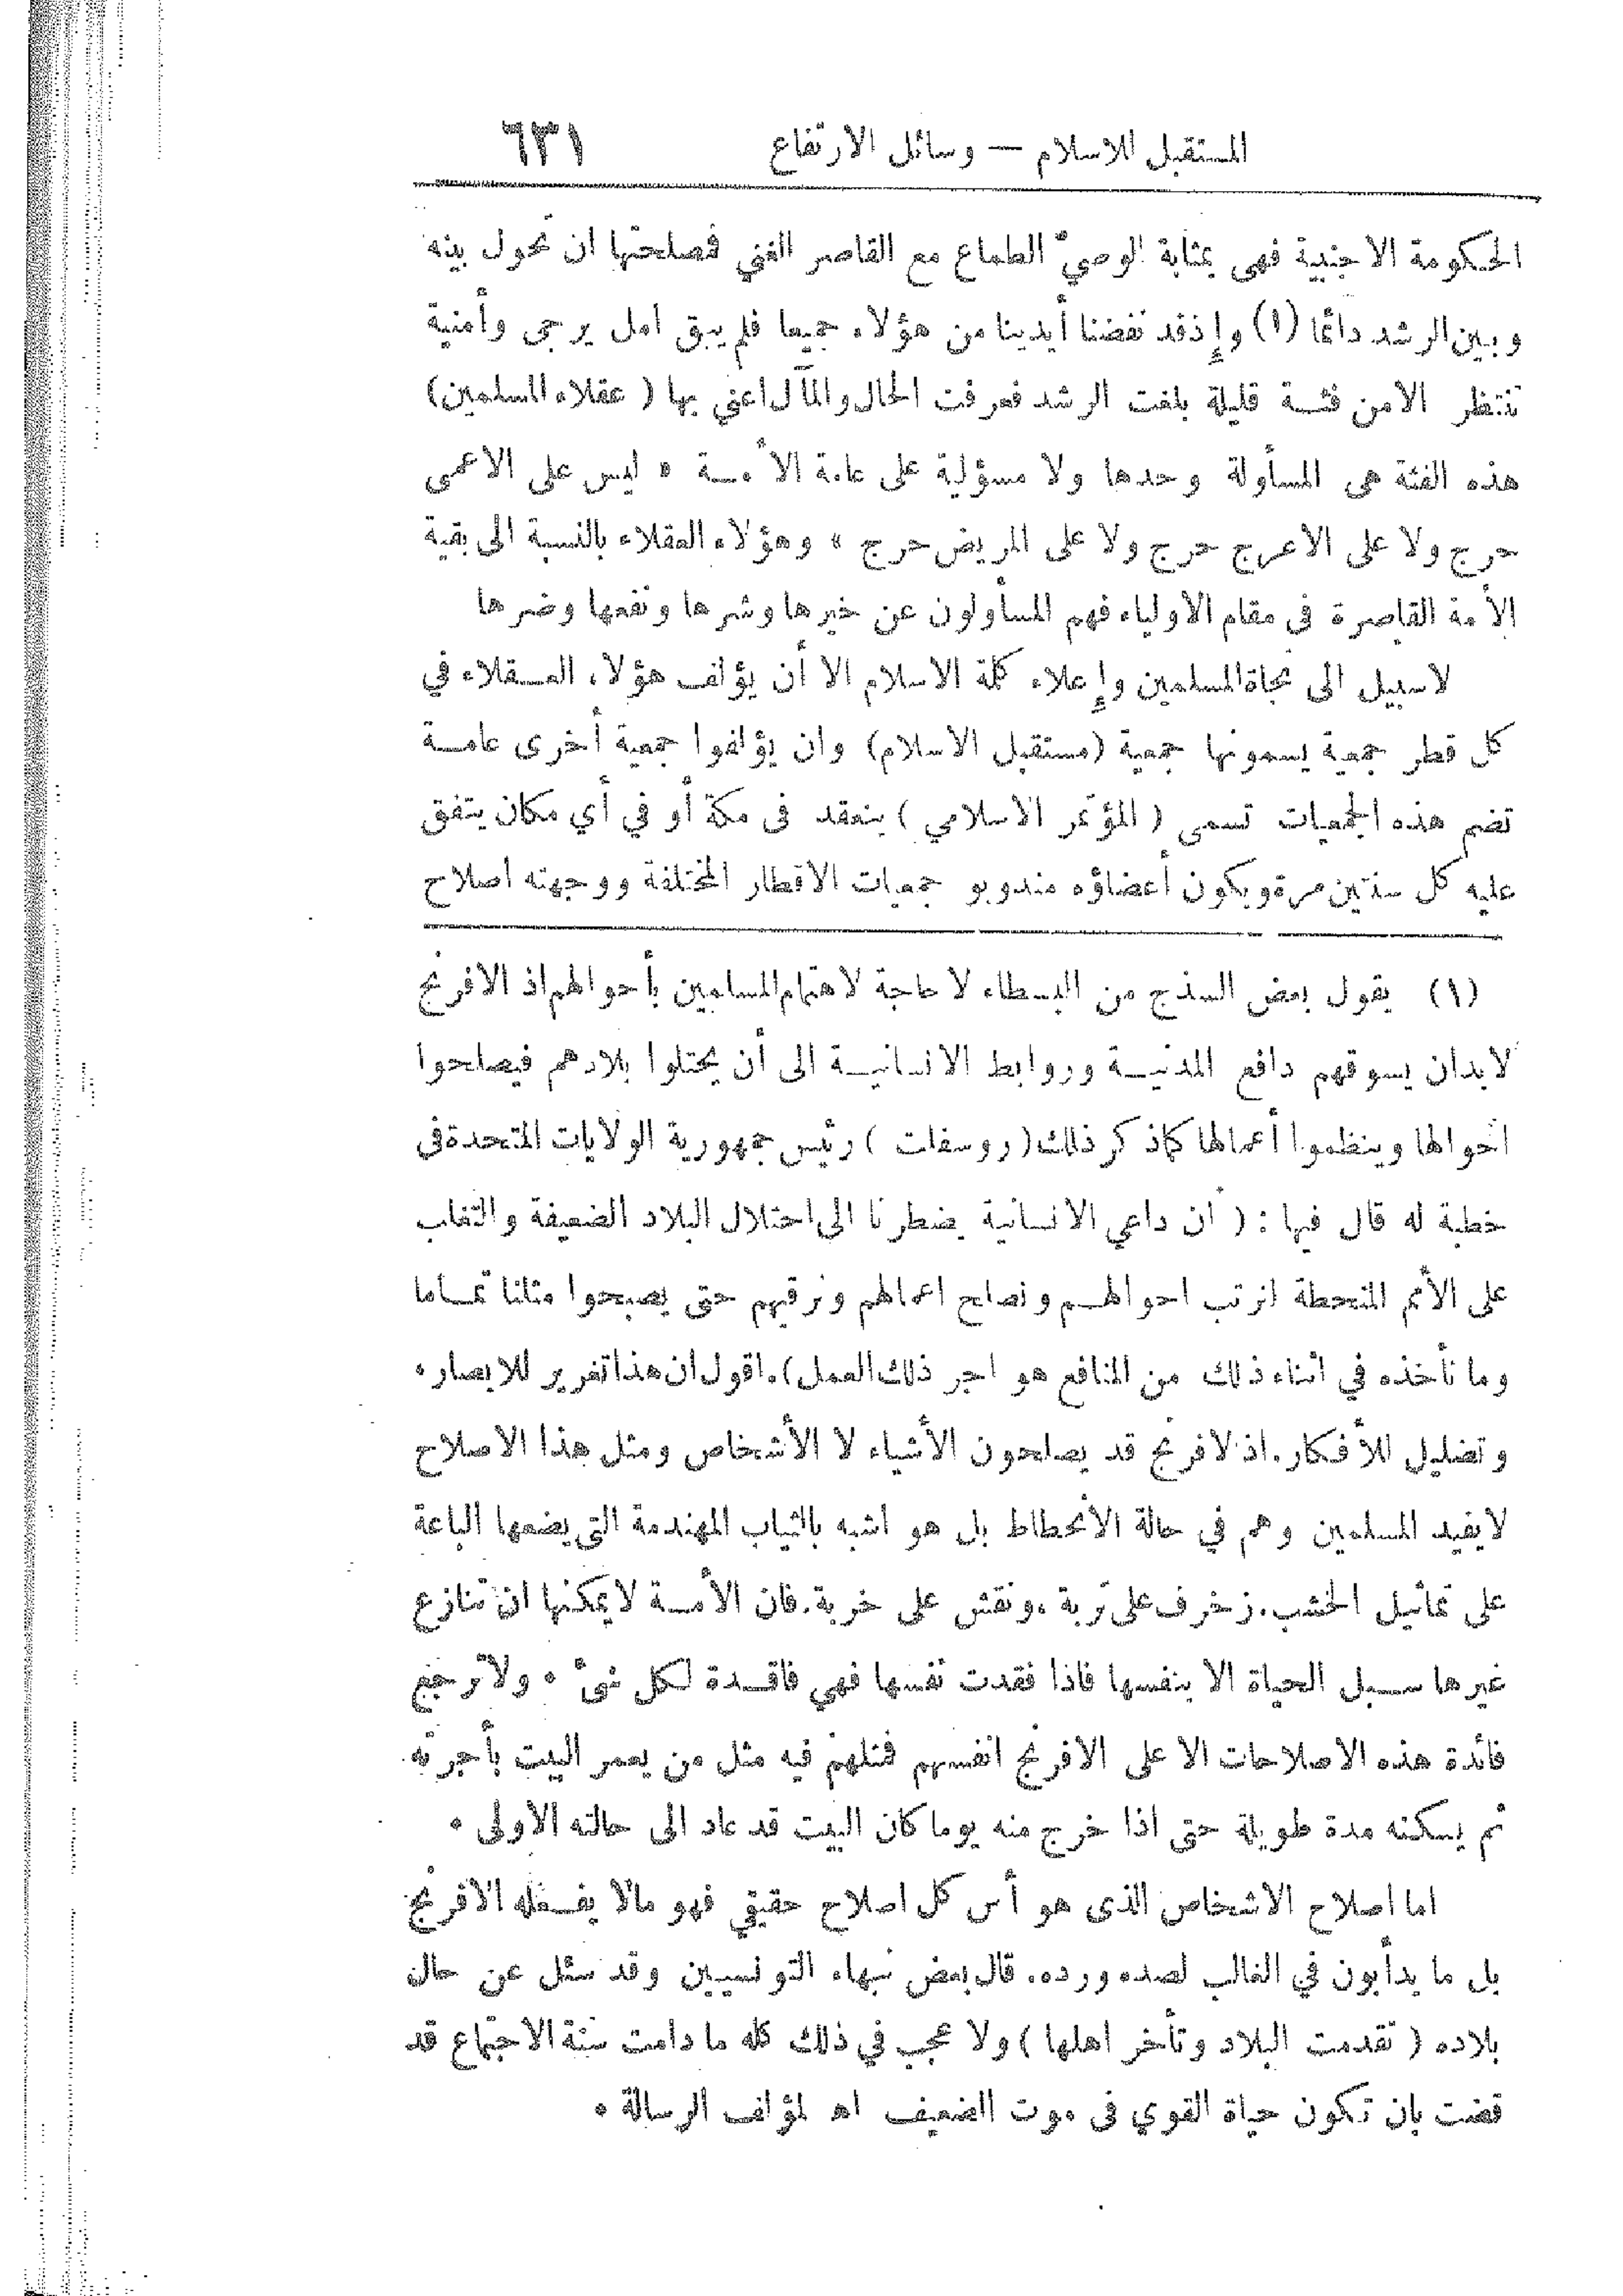 المستقبل للاسلام — وسائل الارتفاع ٦٣١
الحكومة الاجنبية فهى بمثابة الوصيّ الطماع مع القاصر الغني فمصلحتها ان تحول بينه
وبين الرشد دائما (١) وإذ قد نفضنا أيدينا من هؤلاء جميعا فلم يبق امل يرجى وأمنية
تنتظر الا من فئة قليلة بلغت الرشد فعرفت الحال والمآل اعني بها ( عقلاء المسلمين )
هذه الفئة هى المسأولة وحدها ولا مسؤلية على عامة الأمة « ليس على الاعمى
حرج ولا على الاعرج حرج ولا على المريض حرج » وهؤلاء العقلاء بالنسبة الى بقية
الأمة القاصرة فى مقام الاولياء فهم المسأولون عن خيرها وشرها ونفعها وضرها
لا سبيل الى نجاة المسلمين وإعلاء كلمة الاسلام الا أن يؤلف هؤلاء العقلاء في
كل قطر جمعية يسمونها جمعية (مستقبل الاسلام) وان يؤلفوا جمعية أخرى عامة
تضم هذه الجمعيات تسمى ( المؤتمر الاسلامي ) ينعقد فى مكة أو في أي مكان يتفق
عليه كل سنتين مرة ويكون أعضاؤه مندوبو جمعيات الاقطار المختلفة ووجهته اصلاح
(١) يقول بعض السذج من البسطاء لا حاجة لاهتمام المسلمين بأحوالهم اذ الافرنج
لا بد ان يسوقهم دافع المدنية وروابط الانسانية الى أن يحتلوا بلادهم فيصلحوا
احوالها وينظموا أعمالها كما ذكر ذلك ( روسفلت ) رئيس جمهورية الولايات المتحدة فى
خطبة له قال فيها : ( ان داعي الانسانية يضطرنا الى احتلال البلاد الضعيفة والتغلب
على الأمم المنحطة لنرتب احوالهم ونصلح اعمالهم ونرقيهم حتى يصبحوا مثلنا تماما
وما نأخذه في اثناء ذلك من المنافع هو اجر ذلك العمل ). اقول ان هذا تغرير للابصار.
وتضليل للأفكار. اذ لافرنج قد يصلحون الأشياء لا الأشخاص ومثل هذا الاصلاح
لا يفيد المسلمين وهم في حالة الانحطاط بل هو اشبه بالثياب المهندمة التى يضعها الباعة
على تماثيل الخشب. زخرف على تربة . ونقش على خربة. فان الأمة لا يمكنها ان تنازع
غيرها سبل الحياة الا بنفسها فاذا فقدت نفسها فهي فاقدة لكل شئ . ولا ترجع
فائدة هذه الاصلاحات الا على الافرنج انفسهم فمثلهم فيه مثل من يعمر البيت بأجرته
ثم يسكنه مدة طويلة حتى اذا خرج منه يوما كان البيت قد عاد الى حالته الاولى .
اما اصلاح الاشخاص الذى هو أس كل اصلاح حقيقي فهو مالا يفعله الافرنج
بل ما يدأبون في الغالب لصده ورده. قال بعض نبهاء التونسيين وقد سئل عن حال
بلاده ( تقدمت البلاد وتأخر اهلها ) ولا عجب في ذلك كله ما دامت سنة الاجتماع قد
قضت بان تكون حياة القوي فى موت الضعيف اه لمؤلف الرسالة .